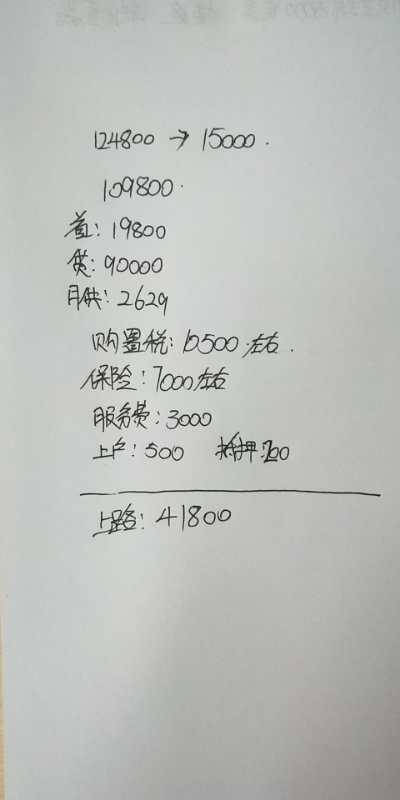 124800 → 15000.
109800.
首: 19800
贷: 90000
月供: 2629
购置税: 10500左右.
保险: 7000左右
服务费: 3000
上户: 500 抵押:
上路: 41800